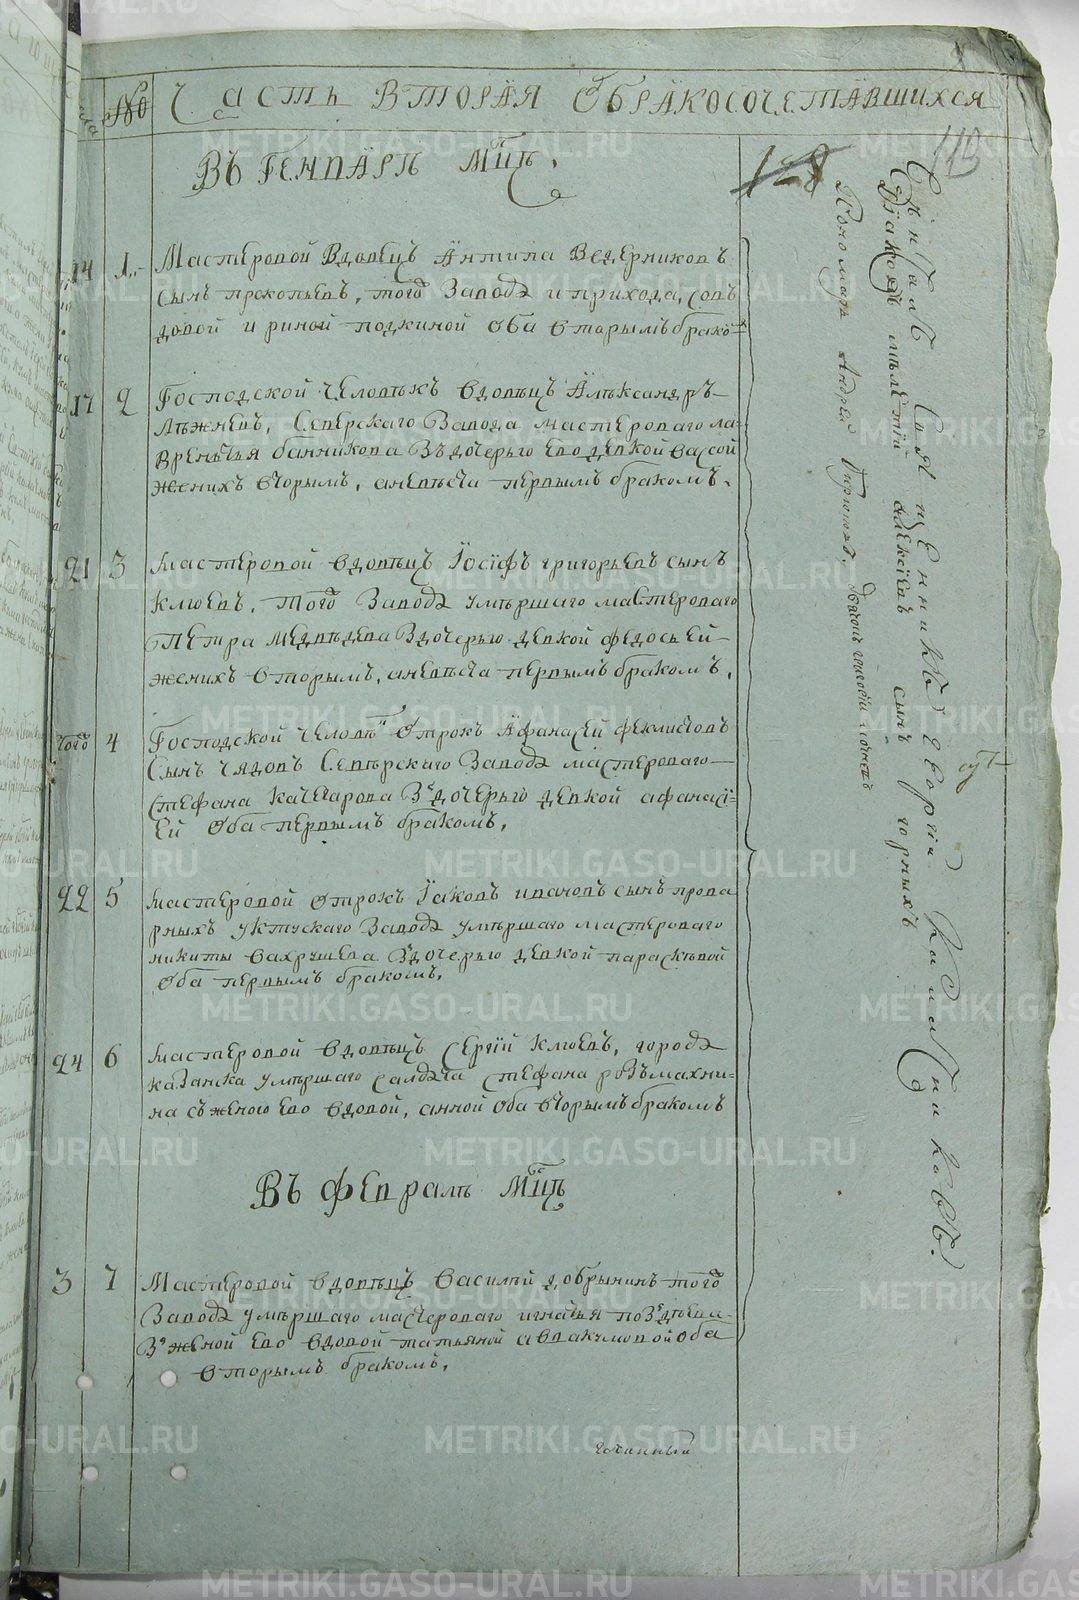 № Часть вторая о бракосочетавшихся
113
128
Въ Генварѣ Мцѣ.
14 1. Мастеровой вдовецъ Антипа Ведерниковъ
сынъ прокопьевъ, того завода и прихода, совъ
довой
оба вторымъ брако
17 2 Господской человѣкъ вдовѣцъ Алѣксандръ
Севѣрскаго завода мастероваго ла
врентья банникова въдочерью ево девкой васой
женихъ вторымъ, аневѣста первымъ бракомъ.
21 3 мастеровой вдовѣцъ Іосифъ григорьевъ сынъ
клюевъ, того завода умѣршаго мастероваго
пѣтра медвѣдева вдочерью девкой федосьей
женихъ вторымъ, аневѣста первымъ бракомъ.
того 4 Господской человѣ отрокъ Афанасей феклистовъ
сынъ чядовъ Севѣрскаго завода мастероваго
стефана качегарова въдочерью девкой афанасі
ей оба первымъ бракомъ.
22 5 мастеровой отрокъ Іаковъ ивановъ сынъ прова
рныхъ уктускаго завода умѣршаго мастероваго
никиты вахрушева вдочерью девкой параскѣвой
оба первымъ бракомъ.
24 6 мастеровой вдовѣцъ Сергій клюевъ, города
казанска умѣршаго салдата стефана розъмахни
на съженою ево вдовой, анной оба вторымъ бракомъ
Въ Февралѣ Мцѣ
3 7 Мастеровой вдовѣцъ василей добрынинъ того
завода умѣршаго мастероваго игнатья поздѣева
въженой ево вдовой татьяной авакумовой оба
вторымъ бракомъ.
Священникъ Георгій
Діаконъ мѣлетій алексіевъ сынъ горныхъ
Пономарь Андрей
METRIKI.GASO-URAL.RU